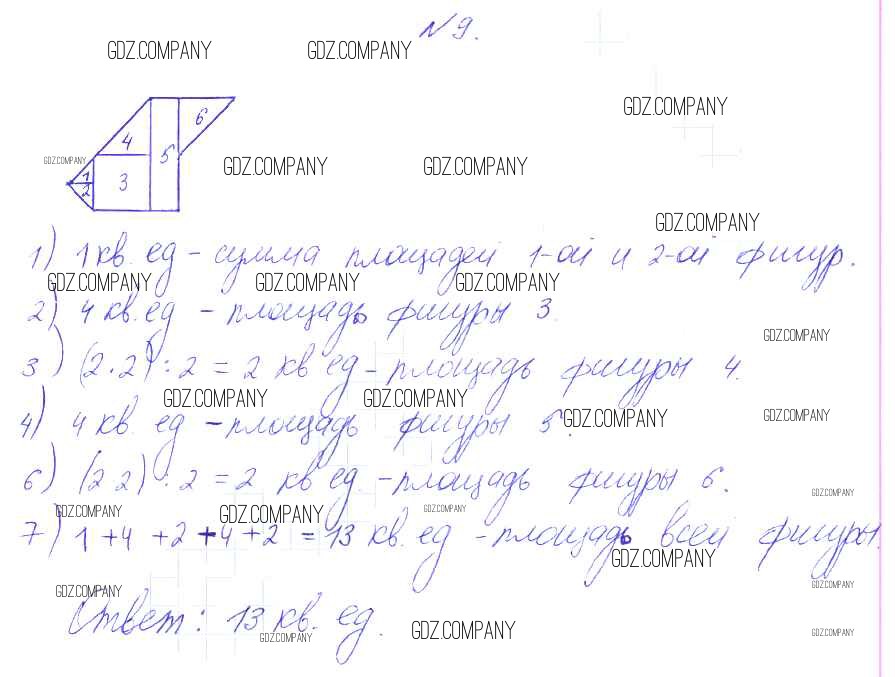 №9.
GDZ.COMPANY GDZ.COMPANY
GDZ.COMPANY
6
4
5
GDZ.COMPANY GDZ.COMPANY GDZ.COMPANY
1
3
2
GDZ.COMPANY
1) 1 кв. ед - сумма площадей 1-ой и 2-ой фигур.
GDZ.COMPANY GDZ.COMPANY GDZ.COMPANY
2) 4 кв. ед - площадь фигуры 3.
GDZ.COMPANY
3) (2·2) : 2 = 2 кв ед - площадь фигуры 4.
GDZ.COMPANY GDZ.COMPANY
4) 4 кв. ед - площадь фигуры 5.
GDZ.COMPANY GDZ.COMPANY
6) (2 2) : 2 = 2 кв ед. - площадь фигуры 6.
GDZ.COMPANY
GDZ.COMPANY GDZ.COMPANY GDZ.COMPANY
7) 1 + 4 + 2 + 4 + 2 = 13 кв. ед - площадь всей фигуры.
GDZ.COMPANY
GDZ.COMPANY GDZ.COMPANY
Ответ: 13 кв. ед.
GDZ.COMPANY GDZ.COMPANY GDZ.COMPANY